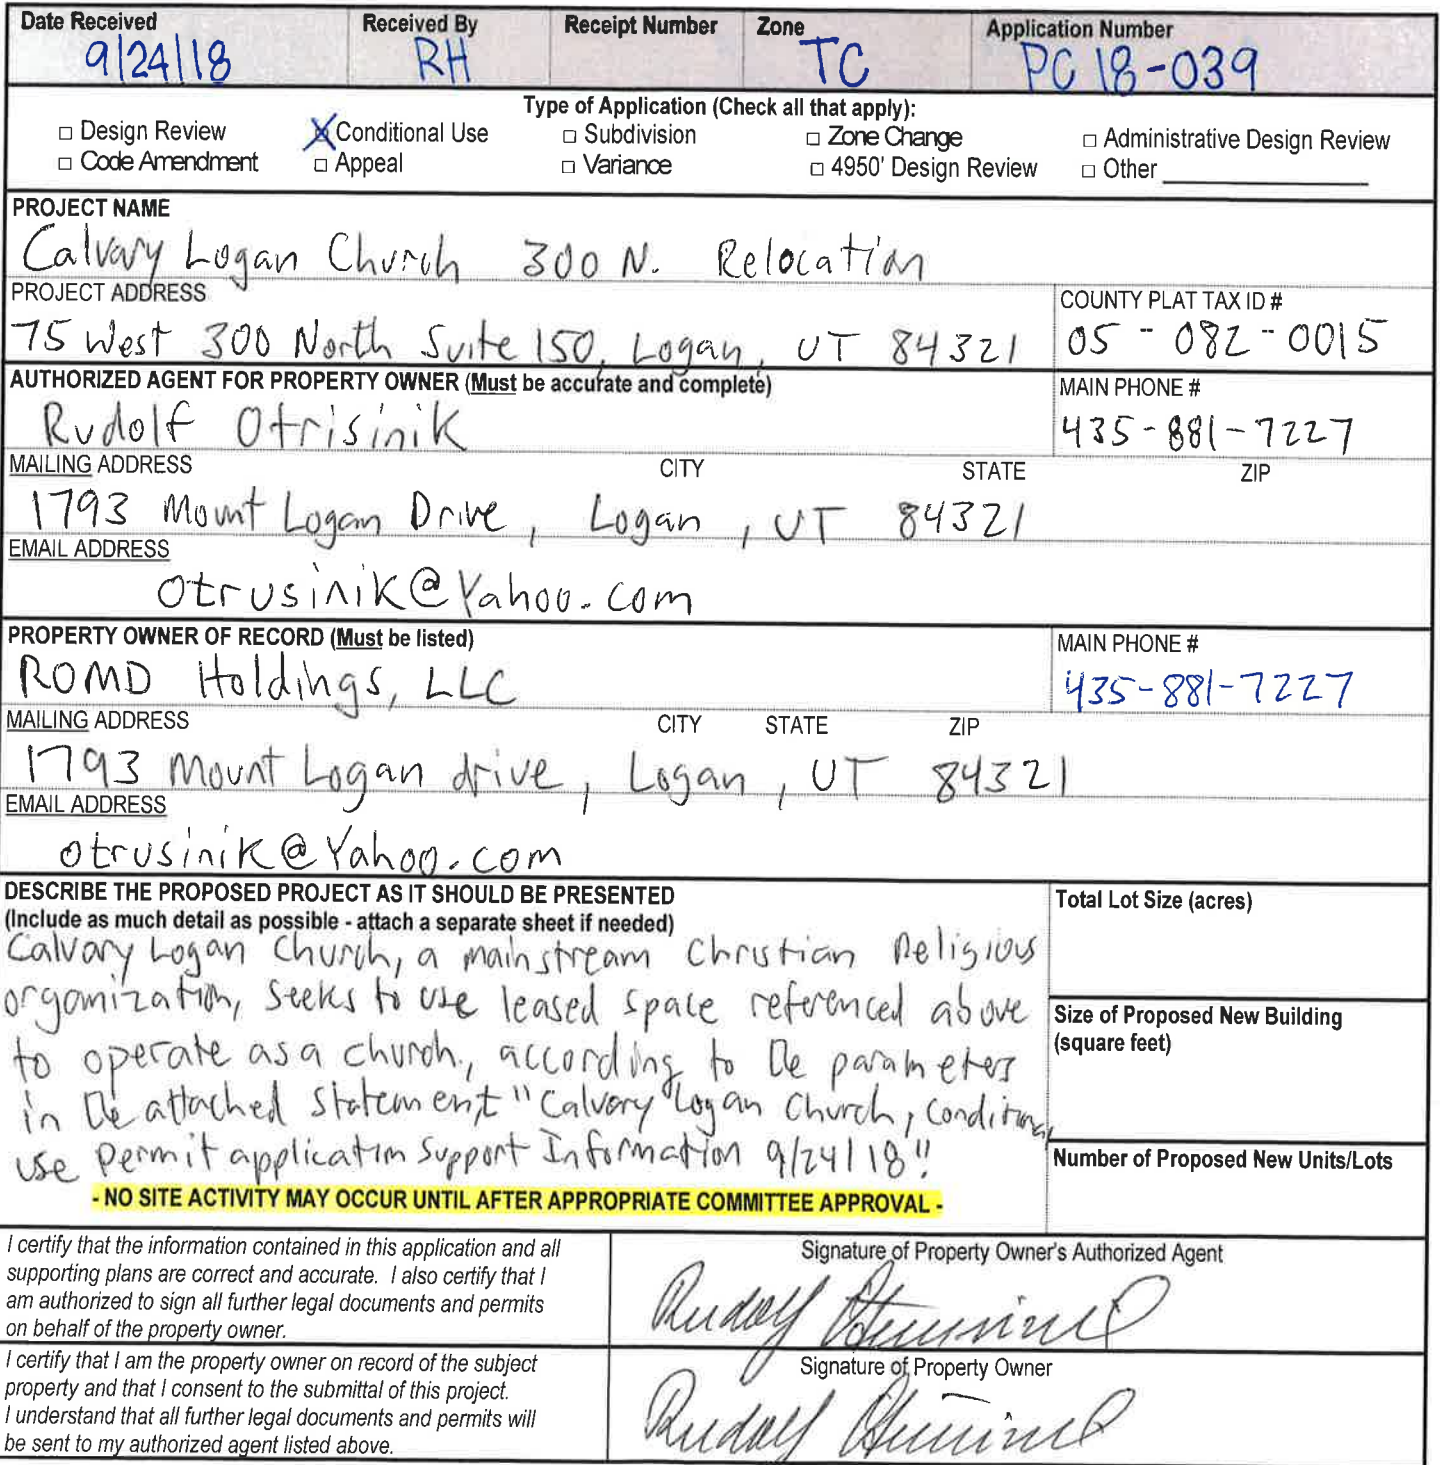 Date Received Received By Receipt Number Zone Application Number
9/24/18 RH TC PC 18-039
Type of Application (Check all that apply):
□ Design Review X Conditional Use □ Subdivision □ Zone Change □ Administrative Design Review
□ Code Amendment □ Appeal □ Variance □ 4950' Design Review □ Other
PROJECT NAME
Calvary Logan Church 300 N. Relocation
PROJECT ADDRESS COUNTY PLAT TAX ID #
75 West 300 North Suite 150, Logan, UT 84321 05-082-0015
AUTHORIZED AGENT FOR PROPERTY OWNER (Must be accurate and complete) MAIN PHONE #
Rudolf Otrisinik 435-881-7227
MAILING ADDRESS CITY STATE ZIP
1793 Mount Logan Drive, Logan, UT 84321
EMAIL ADDRESS
otrusinik@Yahoo.com
PROPERTY OWNER OF RECORD (Must be listed) MAIN PHONE #
ROMD Holdings, LLC 435-881-7227
MAILING ADDRESS CITY STATE ZIP
1793 Mount Logan drive, Logan, UT 84321
EMAIL ADDRESS
otrusinik@Yahoo.com
DESCRIBE THE PROPOSED PROJECT AS IT SHOULD BE PRESENTED
(Include as much detail as possible - attach a separate sheet if needed)
Calvary Logan Church, a mainstream Christian Religious
organization, seeks to use leased space referenced above
to operate as a church, according to the parameters
in the attached statement "Calvary Logan Church, Conditional
use permit application support Information 9/24/18".
- NO SITE ACTIVITY MAY OCCUR UNTIL AFTER APPROPRIATE COMMITTEE APPROVAL -
Total Lot Size (acres)
Size of Proposed New Building
(square feet)
Number of Proposed New Units/Lots
I certify that the information contained in this application and all
supporting plans are correct and accurate. I also certify that I
am authorized to sign all further legal documents and permits
on behalf of the property owner.
Signature of Property Owner's Authorized Agent
Rudolf
I certify that I am the property owner on record of the subject
property and that I consent to the submittal of this project.
I understand that all further legal documents and permits will
be sent to my authorized agent listed above.
Signature of Property Owner
Rudolf